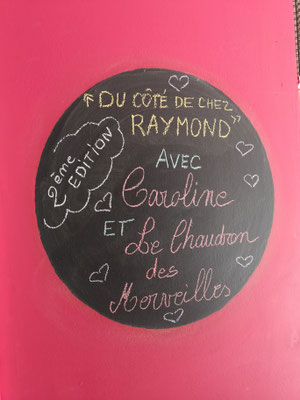 "DU CÔTÉ DE CHEZ
RAYMOND"
2ème
EDITION
AVEC
Caroline
ET Le Chaudron
des
Merveilles